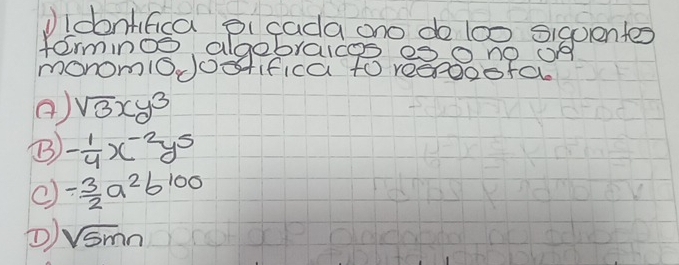 1) Identifica si cada uno de los siguientes
términos algebraicos es o no un
monomio. Justifica tu respuesta.
A) √3xy³
B) -1/4 x⁻²y⁵
C) -3/2 a²b¹⁰⁰
D) √5mn